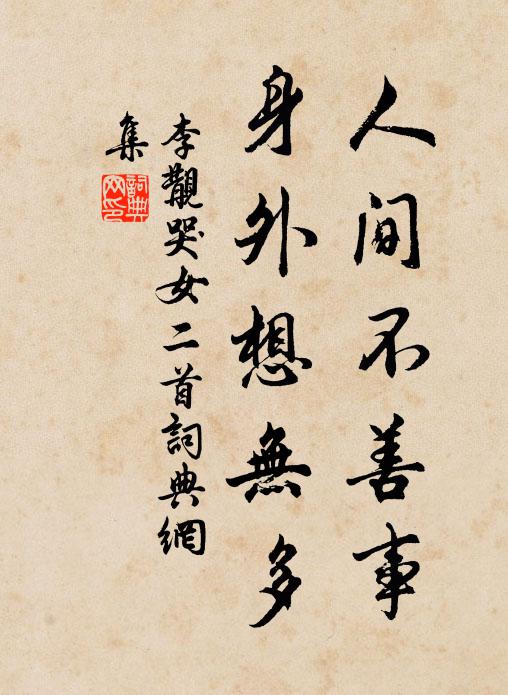 人間不善事
身外想無多
李覯哭女二首詞典網
集
詞典
网印